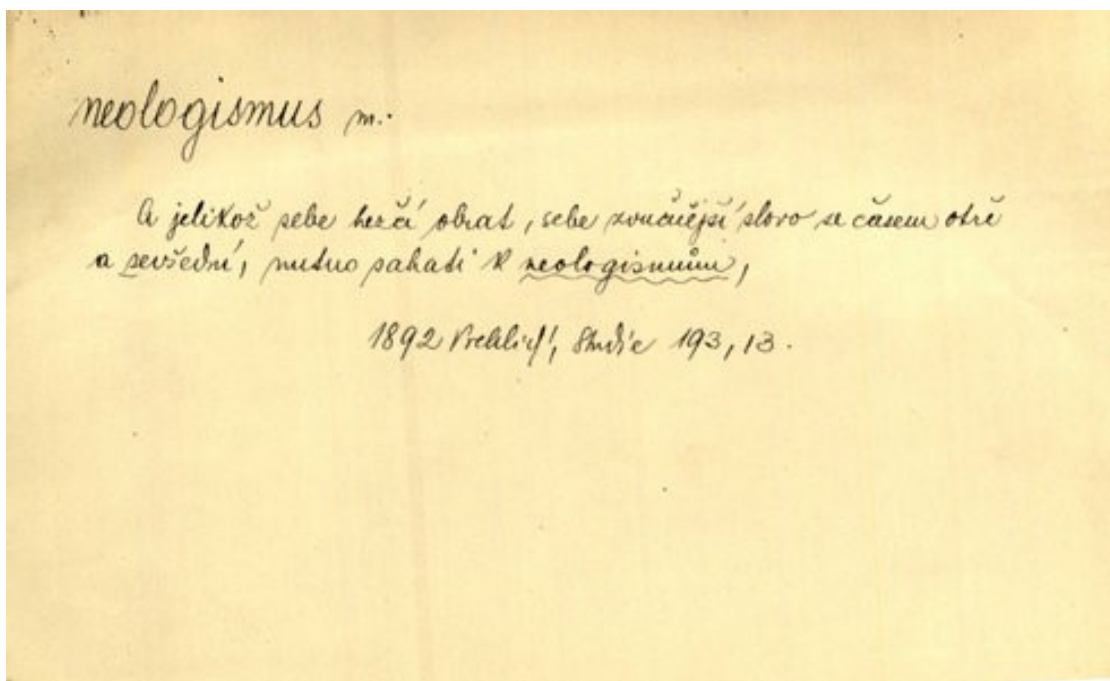 neologismus m.
A jelikož sebe hezčí obrat, sebe zvučnější slovo se časem otře
a sevšední, nutno sahati k neologismům,
1892 Vrchlický, Studie 193, 13.